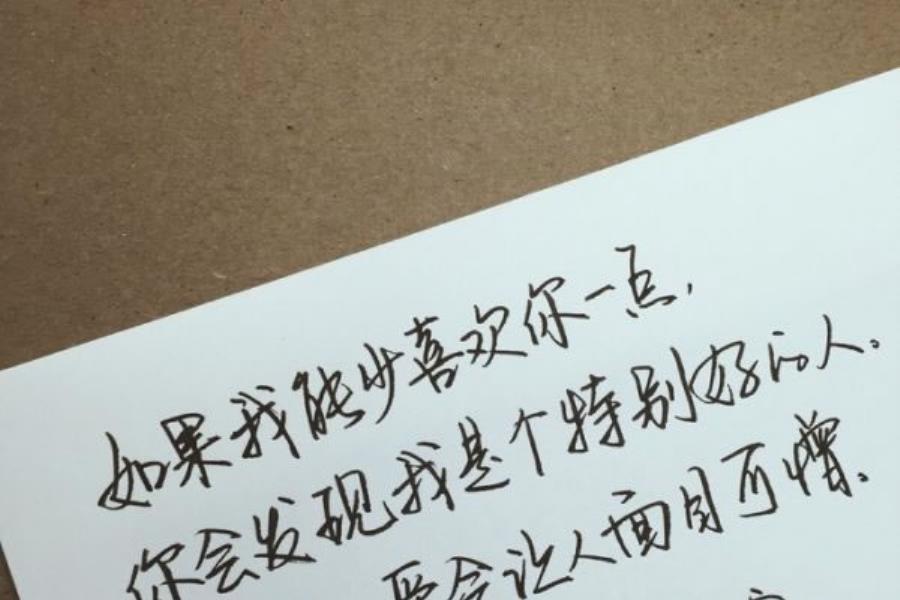 如果我能少喜欢你一点,
你会发现我是个特别好的人。
爱会让人面目可憎。